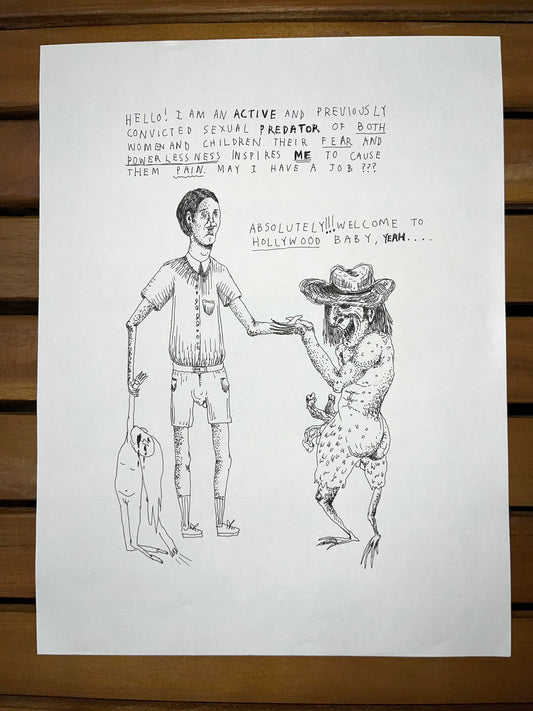 HELLO! I AM AN ACTIVE AND PREVIOUSLY
CONVICTED SEXUAL PREDATOR OF BOTH
WOMEN AND CHILDREN. THEIR FEAR AND
POWERLESSNESS INSPIRES ME TO CAUSE
THEM PAIN. MAY I HAVE A JOB???
ABSOLUTELY!!! WELCOME TO
HOLLYWOOD BABY, YEAH....